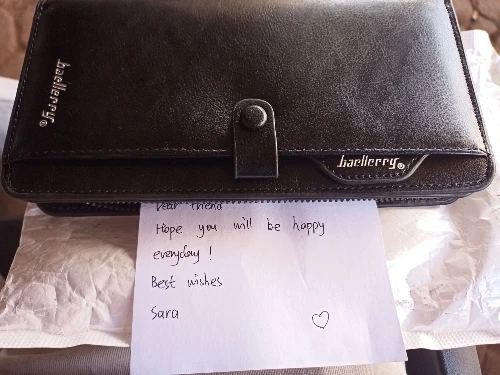 baellerry®
baellerry®
Dear friend
Hope you will be happy
everyday !
Best wishes
Sara